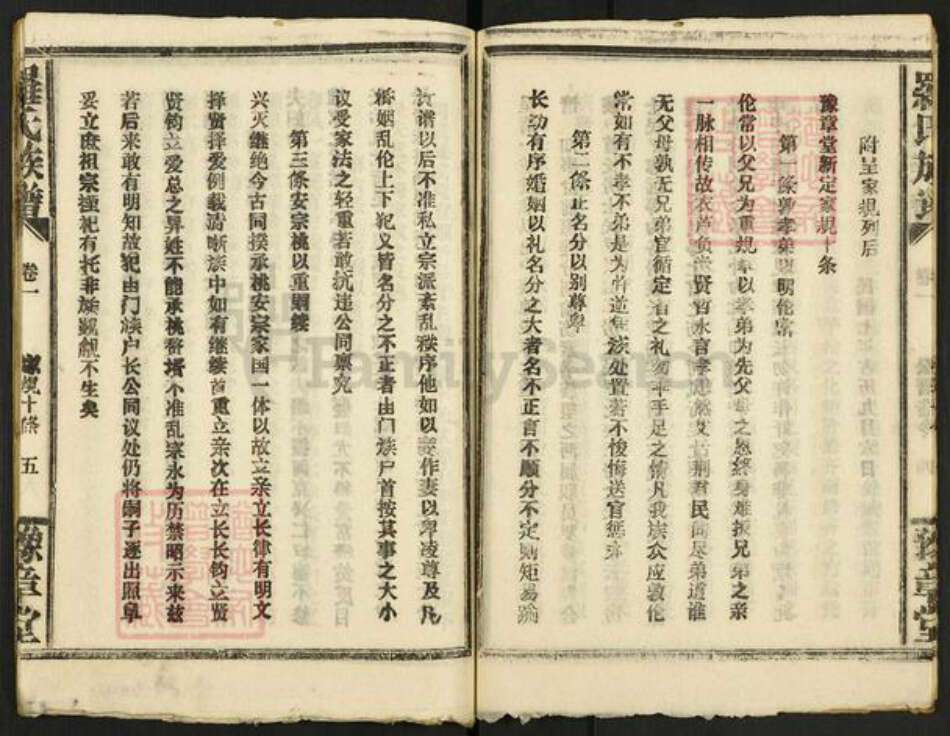 附呈家規列后
豫章堂新定家規十条
第一條 孝弟以明伦常
伦常以父兄为重規率以孝弟为先父母之恩終身难报兄弟之亲
一脉相传故衣芦负米贤哲永言孝思 荆君民间尽弟道谁
无父母孰无兄弟官循定省之礼勿乖手足之情凡我族众应敦伦
常如有不孝不弟是为背逆 族处置若不悛悔送官惩
第二條正名分以别尊卑
长幼有序婚姻以礼名分之大者名不正言不顺分不定则矩易踰
谱以后不准私立宗派紊乱秩序他如以妾作妻以卑凌尊及凡
婚姻乱伦上下犯义皆名分之不正者由门族户首按其事之大小
议受家法之轻重若敢抗违公同禀究
第三條安宗桃以重嗣续
兴灭继绝今古同揆承桃安宗家国一体以故立亲立长律有明文
择贤择爱例载清晰族中如有继续首重立亲次在立长长钧立贤
贤钧立爱总之异姓不能承桃赘壻不准乱宗永为历禁昭示来兹
若后来敢有明知故犯由门族户长公同议处仍将嗣子逐出照阜
妥立庶祖宗禋祀有托非族觊觎不生矣
羅氏族譜
卷一
家规十條 五
豫章堂
羅氏族譜
豫章堂
FamilySearch